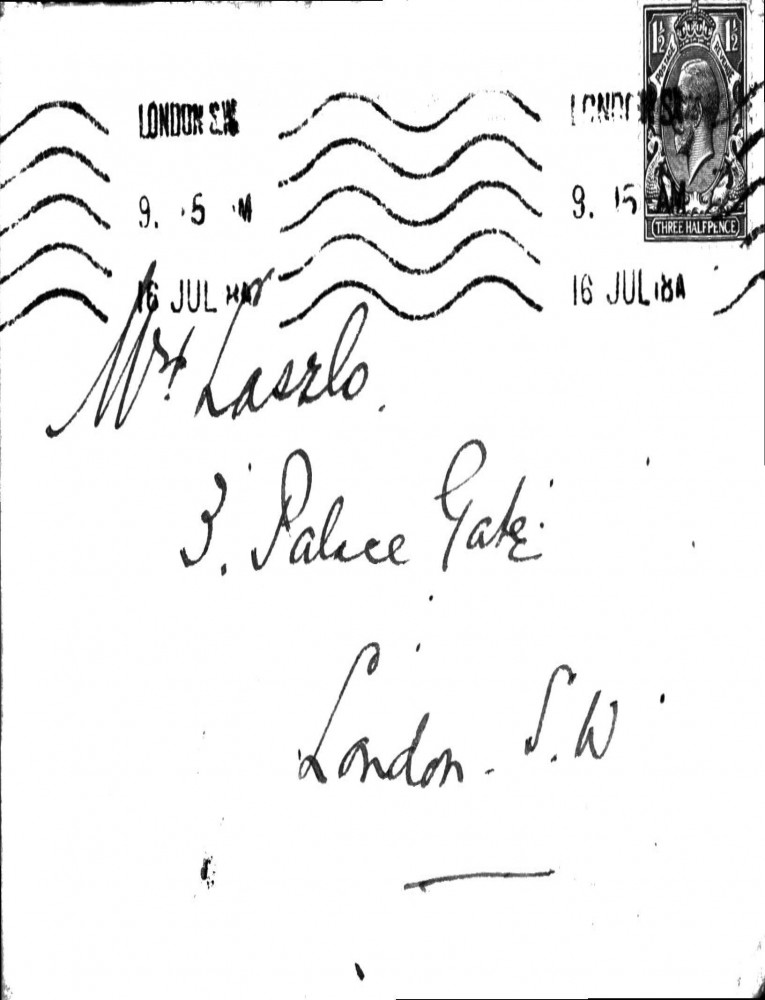 1½ 1½
POSTAGE REVENUE
LONDON S.W.
LONDON S.W.
9. 15 AM
THREE HALFPENCE
16 JUL
16 JUL 18A
Mrs Laszlo.
3. Palace Gate.
London. S.W